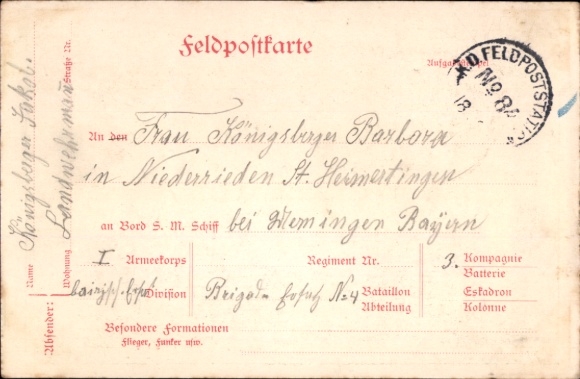 Feldpostkarte
Aufgabestempel
K.D. FELDPOSTSTATION
No 84
18
An den Frau Königsberger Barbara
in Niederrieden St. Heimertingen
an Bord S. M. Schiff bei Memingen Bayern
I Armeekorps Regiment Nr. 3. Kompagnie
Batterie
Division Brigade Ersatz No 4 Bataillon Eskadron
Abteilung Kolonne
Besondere Formationen
Flieger, Funker usw.
Absender:
Name Königsberger Jakob
Wohnung Landwehrman Straße Nr.